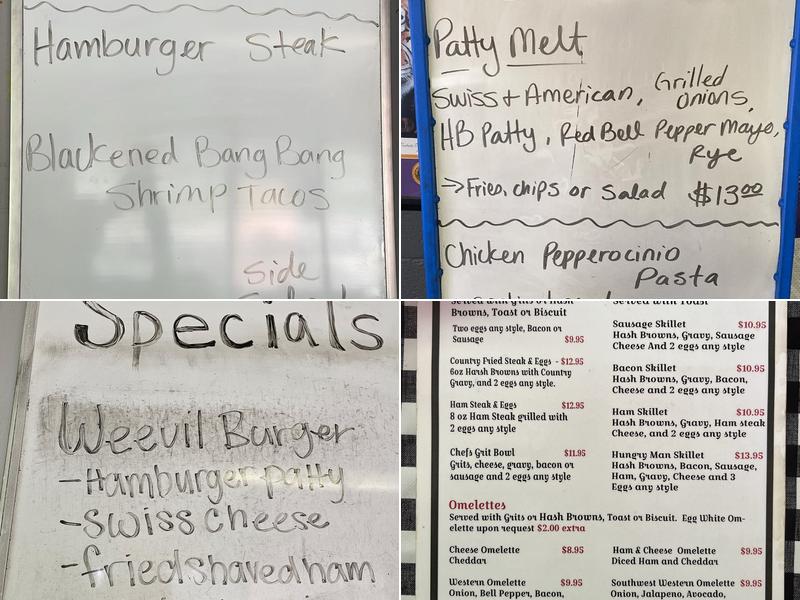 Hamburger Steak
Blackened Bang Bang
Shrimp Tacos
Side
Patty Melt
Swiss + American, Grilled
onions,
HB Patty, Red Bell Pepper Mayo,
Rye
→ Fries, chips or Salad $13.00
Chicken Pepperocinio
Pasta
Specials
Weevil Burger
-Hamburger patty
-swiss cheese
-fried shaved ham
Served with Grits or Hash
Browns, Toast or Biscuit
Two eggs any style, Bacon or
Sausage $9.95
Country Fried Steak & Eggs - $12.95
6oz Harsh Browns with Country
Gravy, and 2 eggs any style.
Ham Steak & Eggs $12.95
8 oz Ham Steak grilled with
2 eggs any style
Chefs Grit Bowl $11.95
Grits, cheese, gravy, bacon or
sausage and 2 eggs any style
Served with Toast
Sausage Skillet $10.95
Hash Browns, Gravy, Sausage
Cheese And 2 eggs any style
Bacon Skillet $10.95
Hash Browns, Gravy, Bacon,
Cheese and 2 eggs any style
Ham Skillet $10.95
Hash Browns, Gravy, Ham steak
Cheese, and 2 eggs any style
Hungry Man Skillet $13.95
Hash Browns, Bacon, Sausage,
Ham, Gravy, Cheese and 3
Eggs any style
Omelettes
Served with Grits or Hash Browns, Toast or Biscuit. Egg White Om-
elette upon request $2.00 extra
Cheese Omelette $8.95
Cheddar
Western Omelette $9.95
Onion, Bell Pepper, Bacon,
Ham & Cheese Omelette $9.95
Diced Ham and Cheddar
Southwest Western Omelette $9.95
Onion, Jalapeno, Avocado,